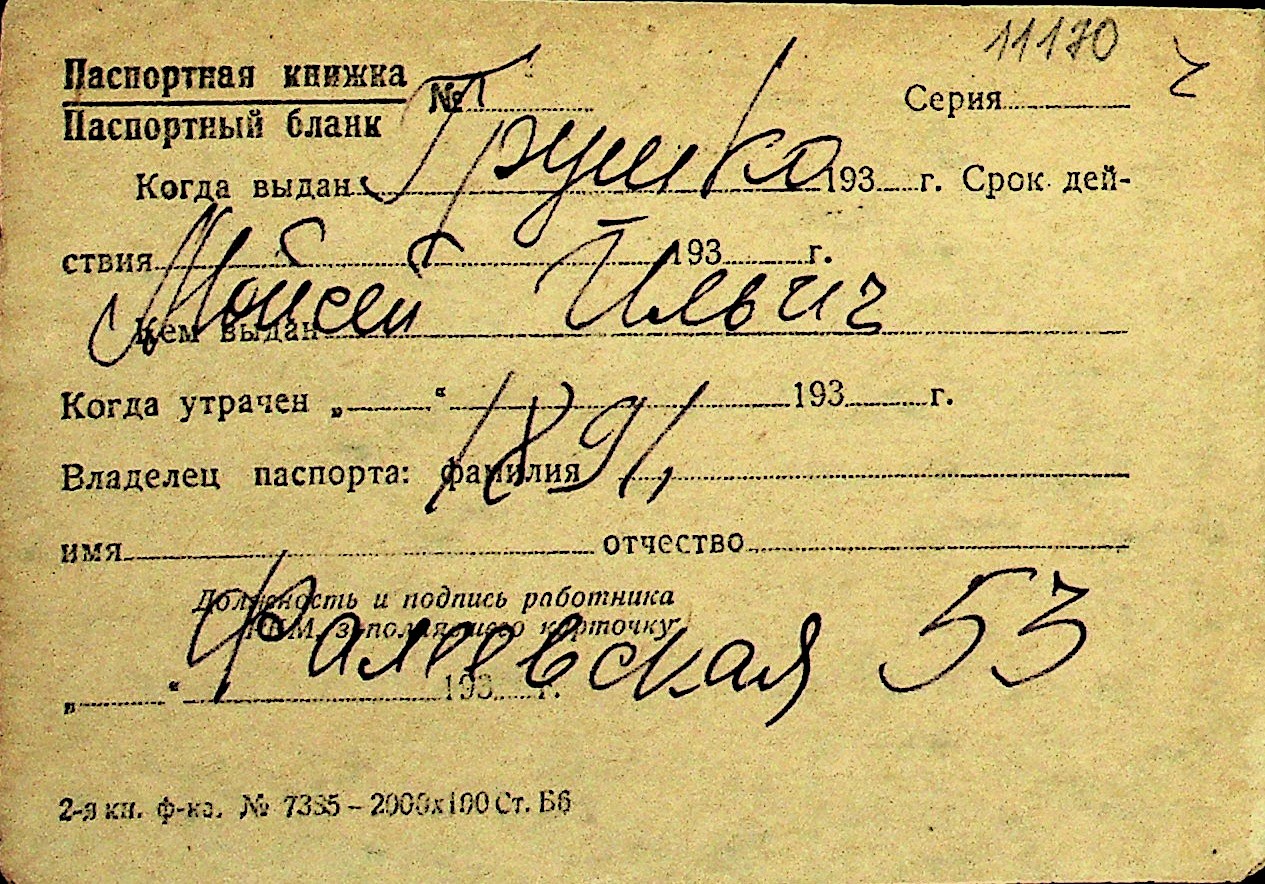 11170
Паспортная книжка
Паспортный бланк № Серия
Грушко
Когда выдан 193 г. Срок дей-
ствия 193 г.
Мойсей Ильич
Кем выдан
Когда утрачен „ “ 193 г.
1891,
Владелец паспорта: фамилия
имя отчество
Должность и подпись работника
РКМ, заполнявшего карточку
Фалеевская 53
„ “ 193 г.
2-я кн. ф-ка. № 7335 – 2000х100 Ст. Б6